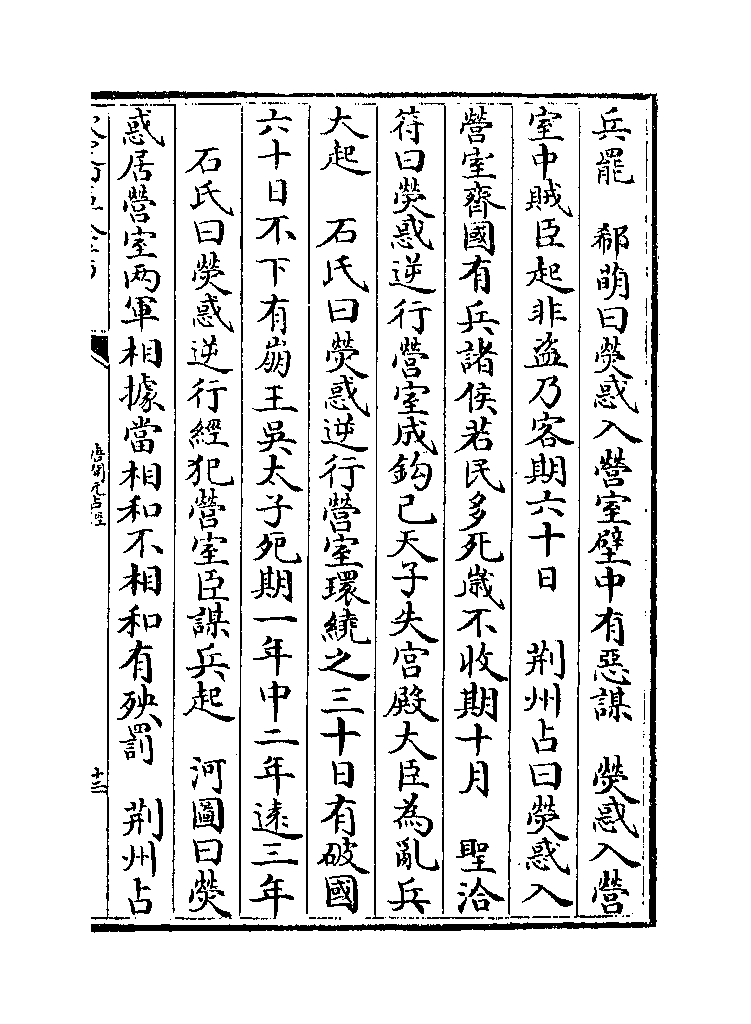 兵罷　郗萌曰熒惑入營室壁中有惡謀　熒惑入營
室中賊臣起非盗乃客期六十日　荆州占曰熒惑入
營室齊國有兵諸侯若民多死歳不收期十月　聖洽
符曰熒惑逆行營室成鈎己天子失宫殿大臣為亂兵
大起　石氏曰熒惑逆行營室環繞之三十日有破國
六十日不下有崩王吴太子死期一年中二年逺三年
石氏曰熒惑逆行經犯營室臣謀兵起　河圖曰熒
惑居營室兩軍相據當相和不相和有殃罰　荆州占
唐開元占經
十三